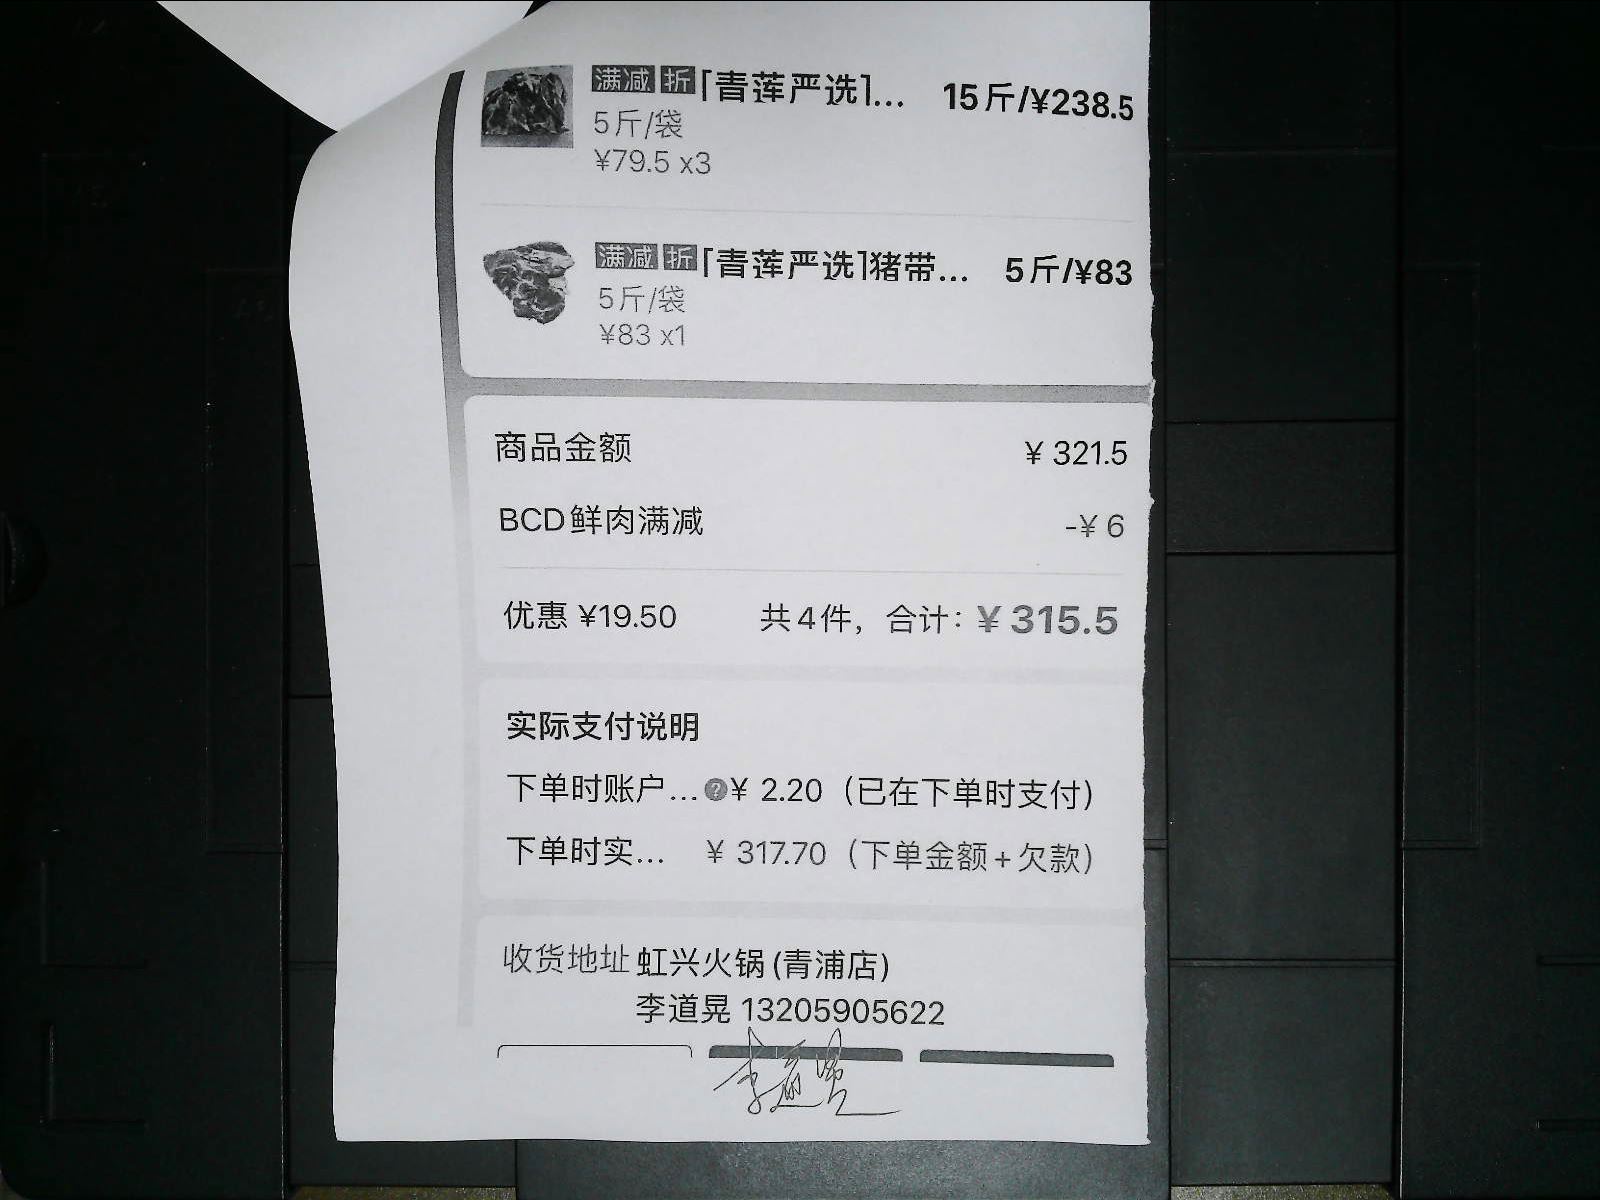 满减 折「青莲严选」... 15斤/¥238.5
5斤/袋
¥79.5 x3
满减 折「青莲严选」猪带... 5斤/¥83
5斤/袋
¥83 x1
商品金额 ¥ 321.5
BCD鲜肉满减 -¥ 6
优惠 ¥19.50 共4件，合计：¥ 315.5
实际支付说明
下单时账户... ?¥ 2.20（已在下单时支付）
下单时实... ¥ 317.70（下单金额+欠款）
收货地址 虹兴火锅(青浦店)
李道晃 13205905622
李道晃